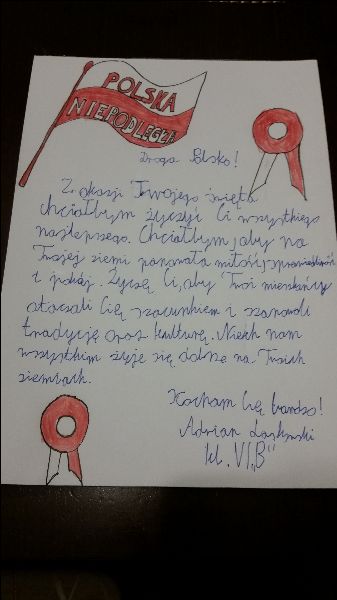 POLSKA
NIEPODLEGŁA
Droga Polsko!
Z okazji Twojego święta
chciałbym życzyć Ci wszystkiego
najlepszego. Chciałbym, aby na
Twojej ziemi panowała miłość, sprawiedliwość
i pokój. Życzę Ci, aby Twoi mieszkańcy
otaczali Cię szacunkiem i szanowali
tradycję oraz kulturę. Niech nam
wszystkim żyje się dobrze na Twoich
ziemiach.
Kocham Cię bardzo!
Adrian
kl. VI „B"